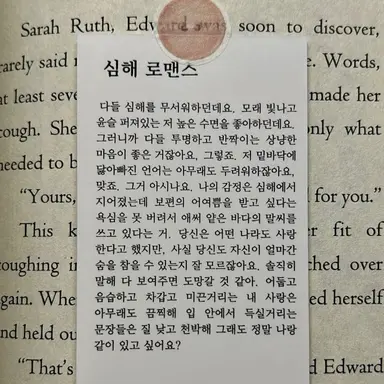 Sarah Ruth, Edward was soon to discover,
rarely said
e. Words,
at least seve
made her
cough. She
only what
needed to b
"Yours,
for you."
This k
er fit of
coughing i
ched over
again. Whe
ed herself
and held ou
"That's
d Edward
심해 로맨스
다들 심해를 무서워하던데요. 모래 빛나고
윤슬 퍼져있는 저 높은 수면을 좋아하던데요.
그러니까 다들 투명하고 반짝이는 상냥한
마음이 좋은 거잖아요. 그렇죠. 저 밑바닥에
닳아빠진 언어는 아무래도 두려워하잖아요,
맞죠. 그거 아시나요. 나의 감정은 심해에서
지어졌는데 보편의 어여쁨을 받고 싶다는
욕심을 못 버려서 애써 얕은 바다의 말씨를
쓰고 있다는 거. 당신은 어떤 나라도 사랑
한다고 했지만, 사실 당신도 자신이 얼마간
숨을 참을 수 있는지 잘 모르잖아요. 솔직히
말해 다 보여주면 도망갈 것 같아. 어둡고
음습하고 차갑고 미끈거리는 내 사랑은
아무래도 끔찍해 입 안에서 득실거리는
문장들은 질 낮고 천박해 그래도 정말 나랑
같이 있고 싶어요?